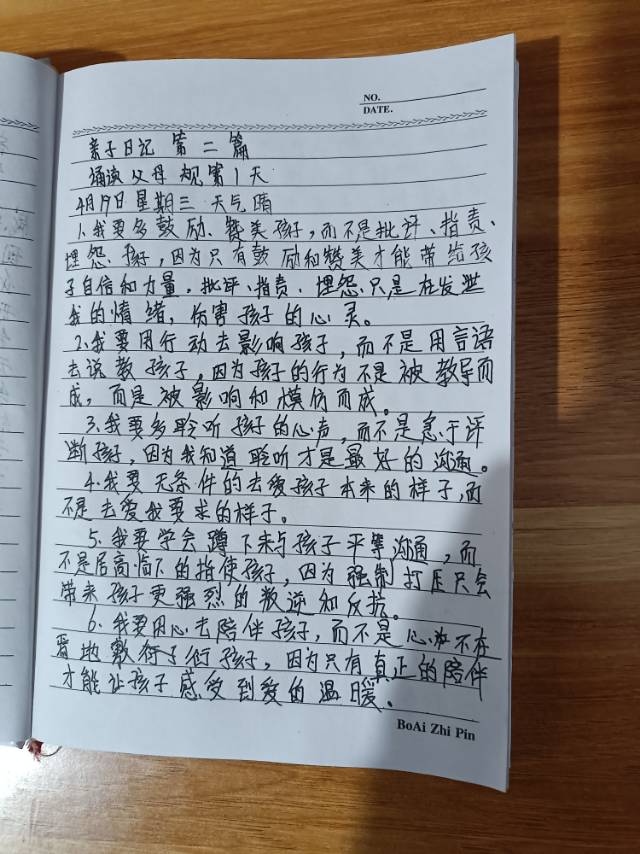 NO.
DATE.
亲子日记 第二篇
诵读父母规第1天
4月19日 星期三 天气晴
1、我要多鼓励、赞美孩子,而不是批评、指责、
埋怨、孩子,因为只有鼓励和赞美才能带给孩
子自信和力量。批评、指责、埋怨、只是在发泄
我的情绪,伤害孩子的心灵。
2、我要用行动去影响孩子,而不是用言语
去说教孩子,因为孩子的行为不是被教导而
成,而是被影响和模仿而成。
3、我要多聆听孩子的心声,而不是急于评
断孩子,因为我知道聆听才是最好的沟通。
4、我要无条件的去爱孩子本来的样子,而
不是去爱我要求的样子。
5、我要学会蹲下来与孩子平等沟通,而
不是居高临下的指使孩子,因为强制打压只会
带来孩子更强烈的叛逆和反抗。
6、我要用心去陪伴孩子,而不是心不在
焉地敷衍孩子,因为只有真正的陪伴
才能让孩子感受到爱的温暖。
BoAi Zhi Pin